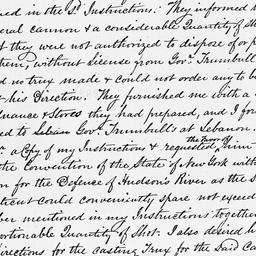 ned in the Sd. Instructions. They informed
eral cannon & a considerable Quantity of Shot
t they were not authorized to dispose of or
them, without License from Govr. Trumbull
nd no trux made & could not order any to b
t his Direction. They furnished me with a
nance & Stores they had prepared, and I for
ed to Lebanon Govr. Trumbull's at Lebanon.
a Copy of my Instructions & requested
the Convention of the State of New York with
on for the Defence of Hudson's River as the
ticut could conveniently spare not exceed
ber mentioned in my Instructions together
ortionable Quantity of Shot. I also desired h
irections for the Casting Trux for the Said Ca